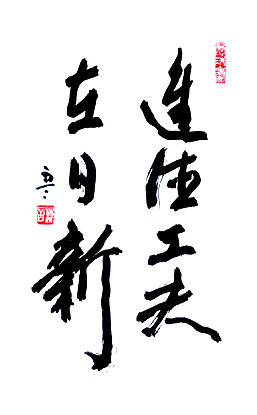 進德工夫
在日新